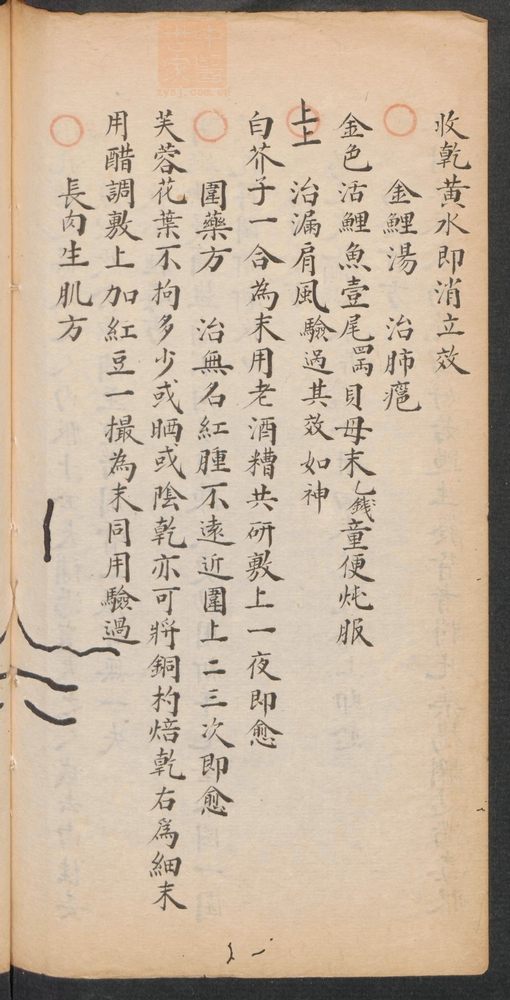 收乾黃水即消立效
金鯉湯　治肺癰
金色活鯉魚壹尾 貝母末乙錢童便炖服
上上　治漏肩風驗過其效如神
白芥子一合為末用老酒糟共研敷上一夜即愈
圍藥方　治無名紅腫不遠近圍上二三次即愈
芙蓉花葉不拘多少或晒或陰乾亦可將銅杓焙乾右為細末
用醋調敷上加紅豆一撮為末同用驗過
長肉生肌方